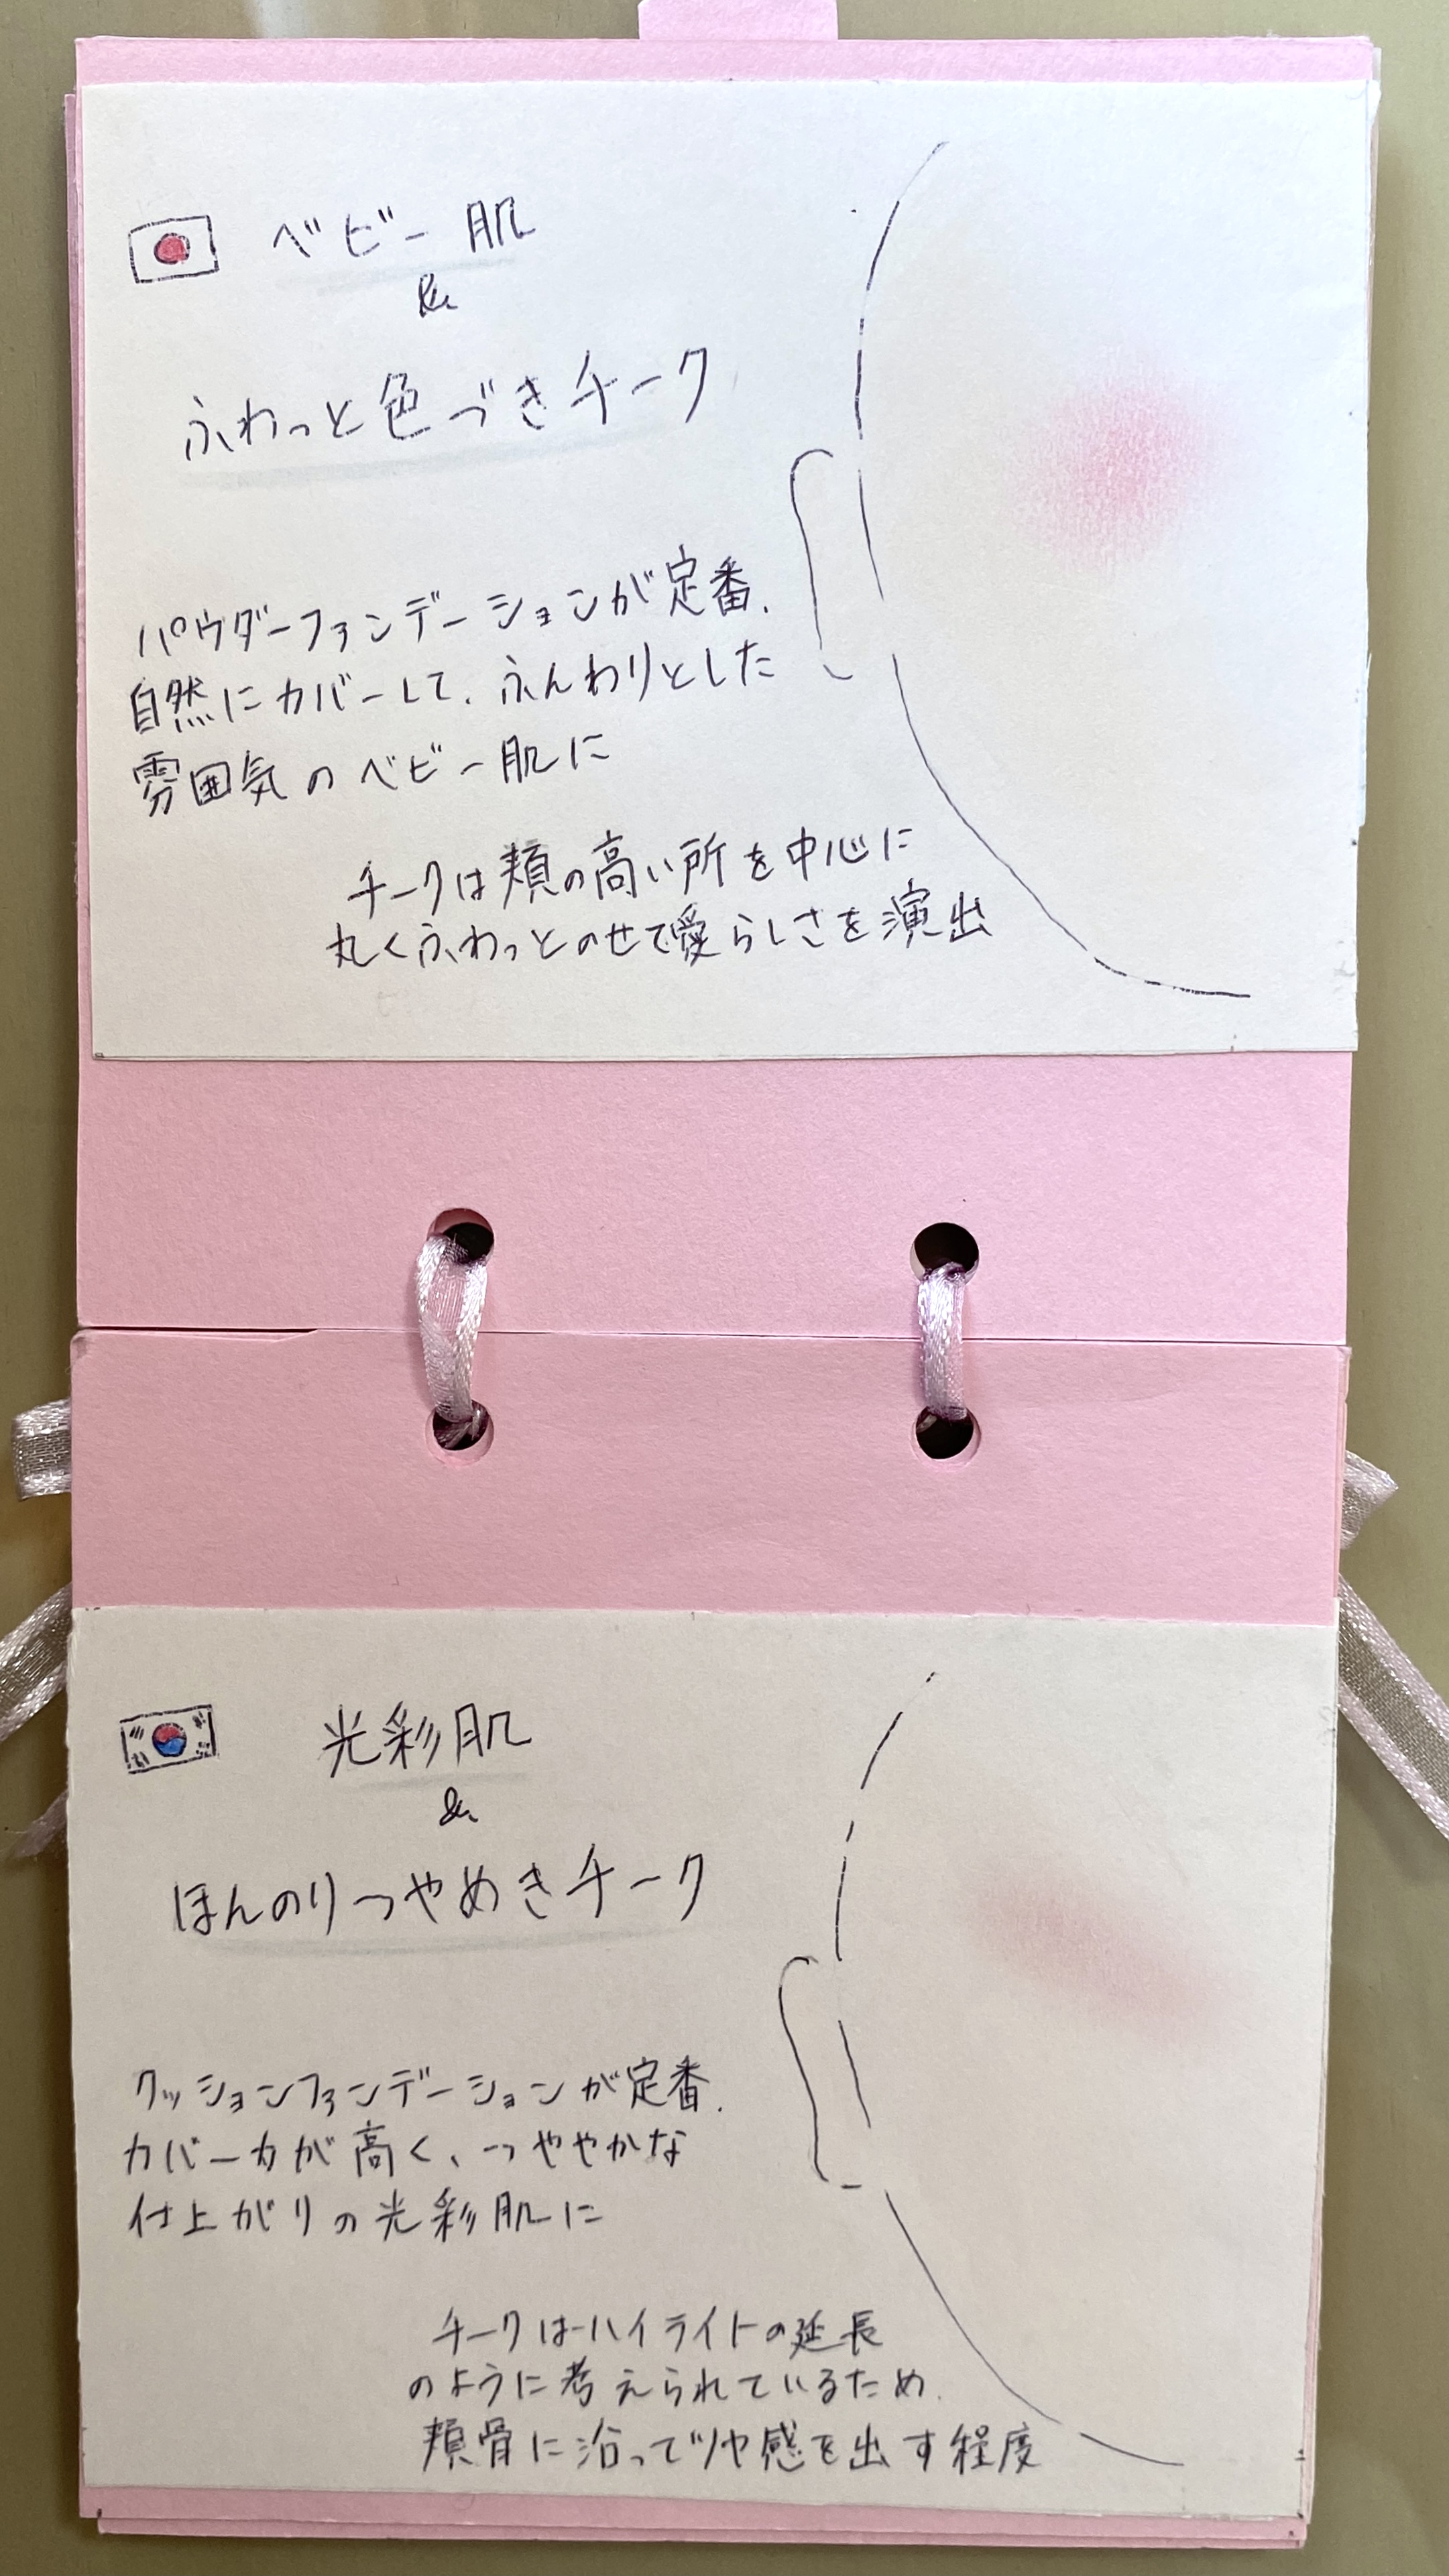 ベビー肌
&
ふわっと色づきチーク
パウダーファンデーションが定番、
自然にカバーして、ふんわりとした
雰囲気のベビー肌に
チークは頬の高い所を中心に
丸くふわっとのせて愛らしさを演出
光彩肌
&
ほんのりつやめきチーク
クッションファンデーションが定番、
カバー力が高く、つややかな
仕上がりの光彩肌に
チークはハイライトの延長
のように考えられているため、
頬骨に沿ってツヤ感を出す程度